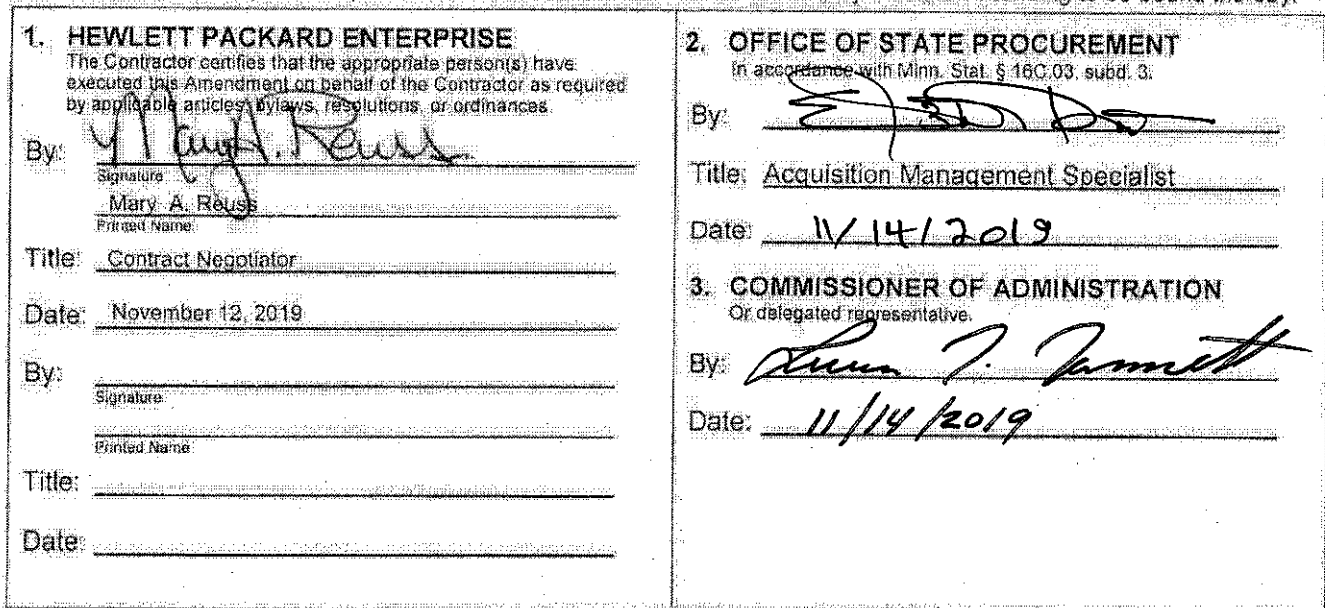 1. HEWLETT PACKARD ENTERPRISE
The Contractor certifies that the appropriate person(s) have
executed this Amendment on behalf of the Contractor as required
by applicable articles, bylaws, resolutions, or ordinances.
By: Mary A. Reuss
Signature
Mary A. Reuss
Printed Name
Title: Contract Negotiator
Date: November 12, 2019
By:
Signature
Printed Name
Title:
Date:
2. OFFICE OF STATE PROCUREMENT
In accordance with Minn. Stat. § 16C.03, subd. 3.
By:
Title: Acquisition Management Specialist
Date: 11/14/2019
3. COMMISSIONER OF ADMINISTRATION
Or delegated representative.
By:
Date: 11/14/2019